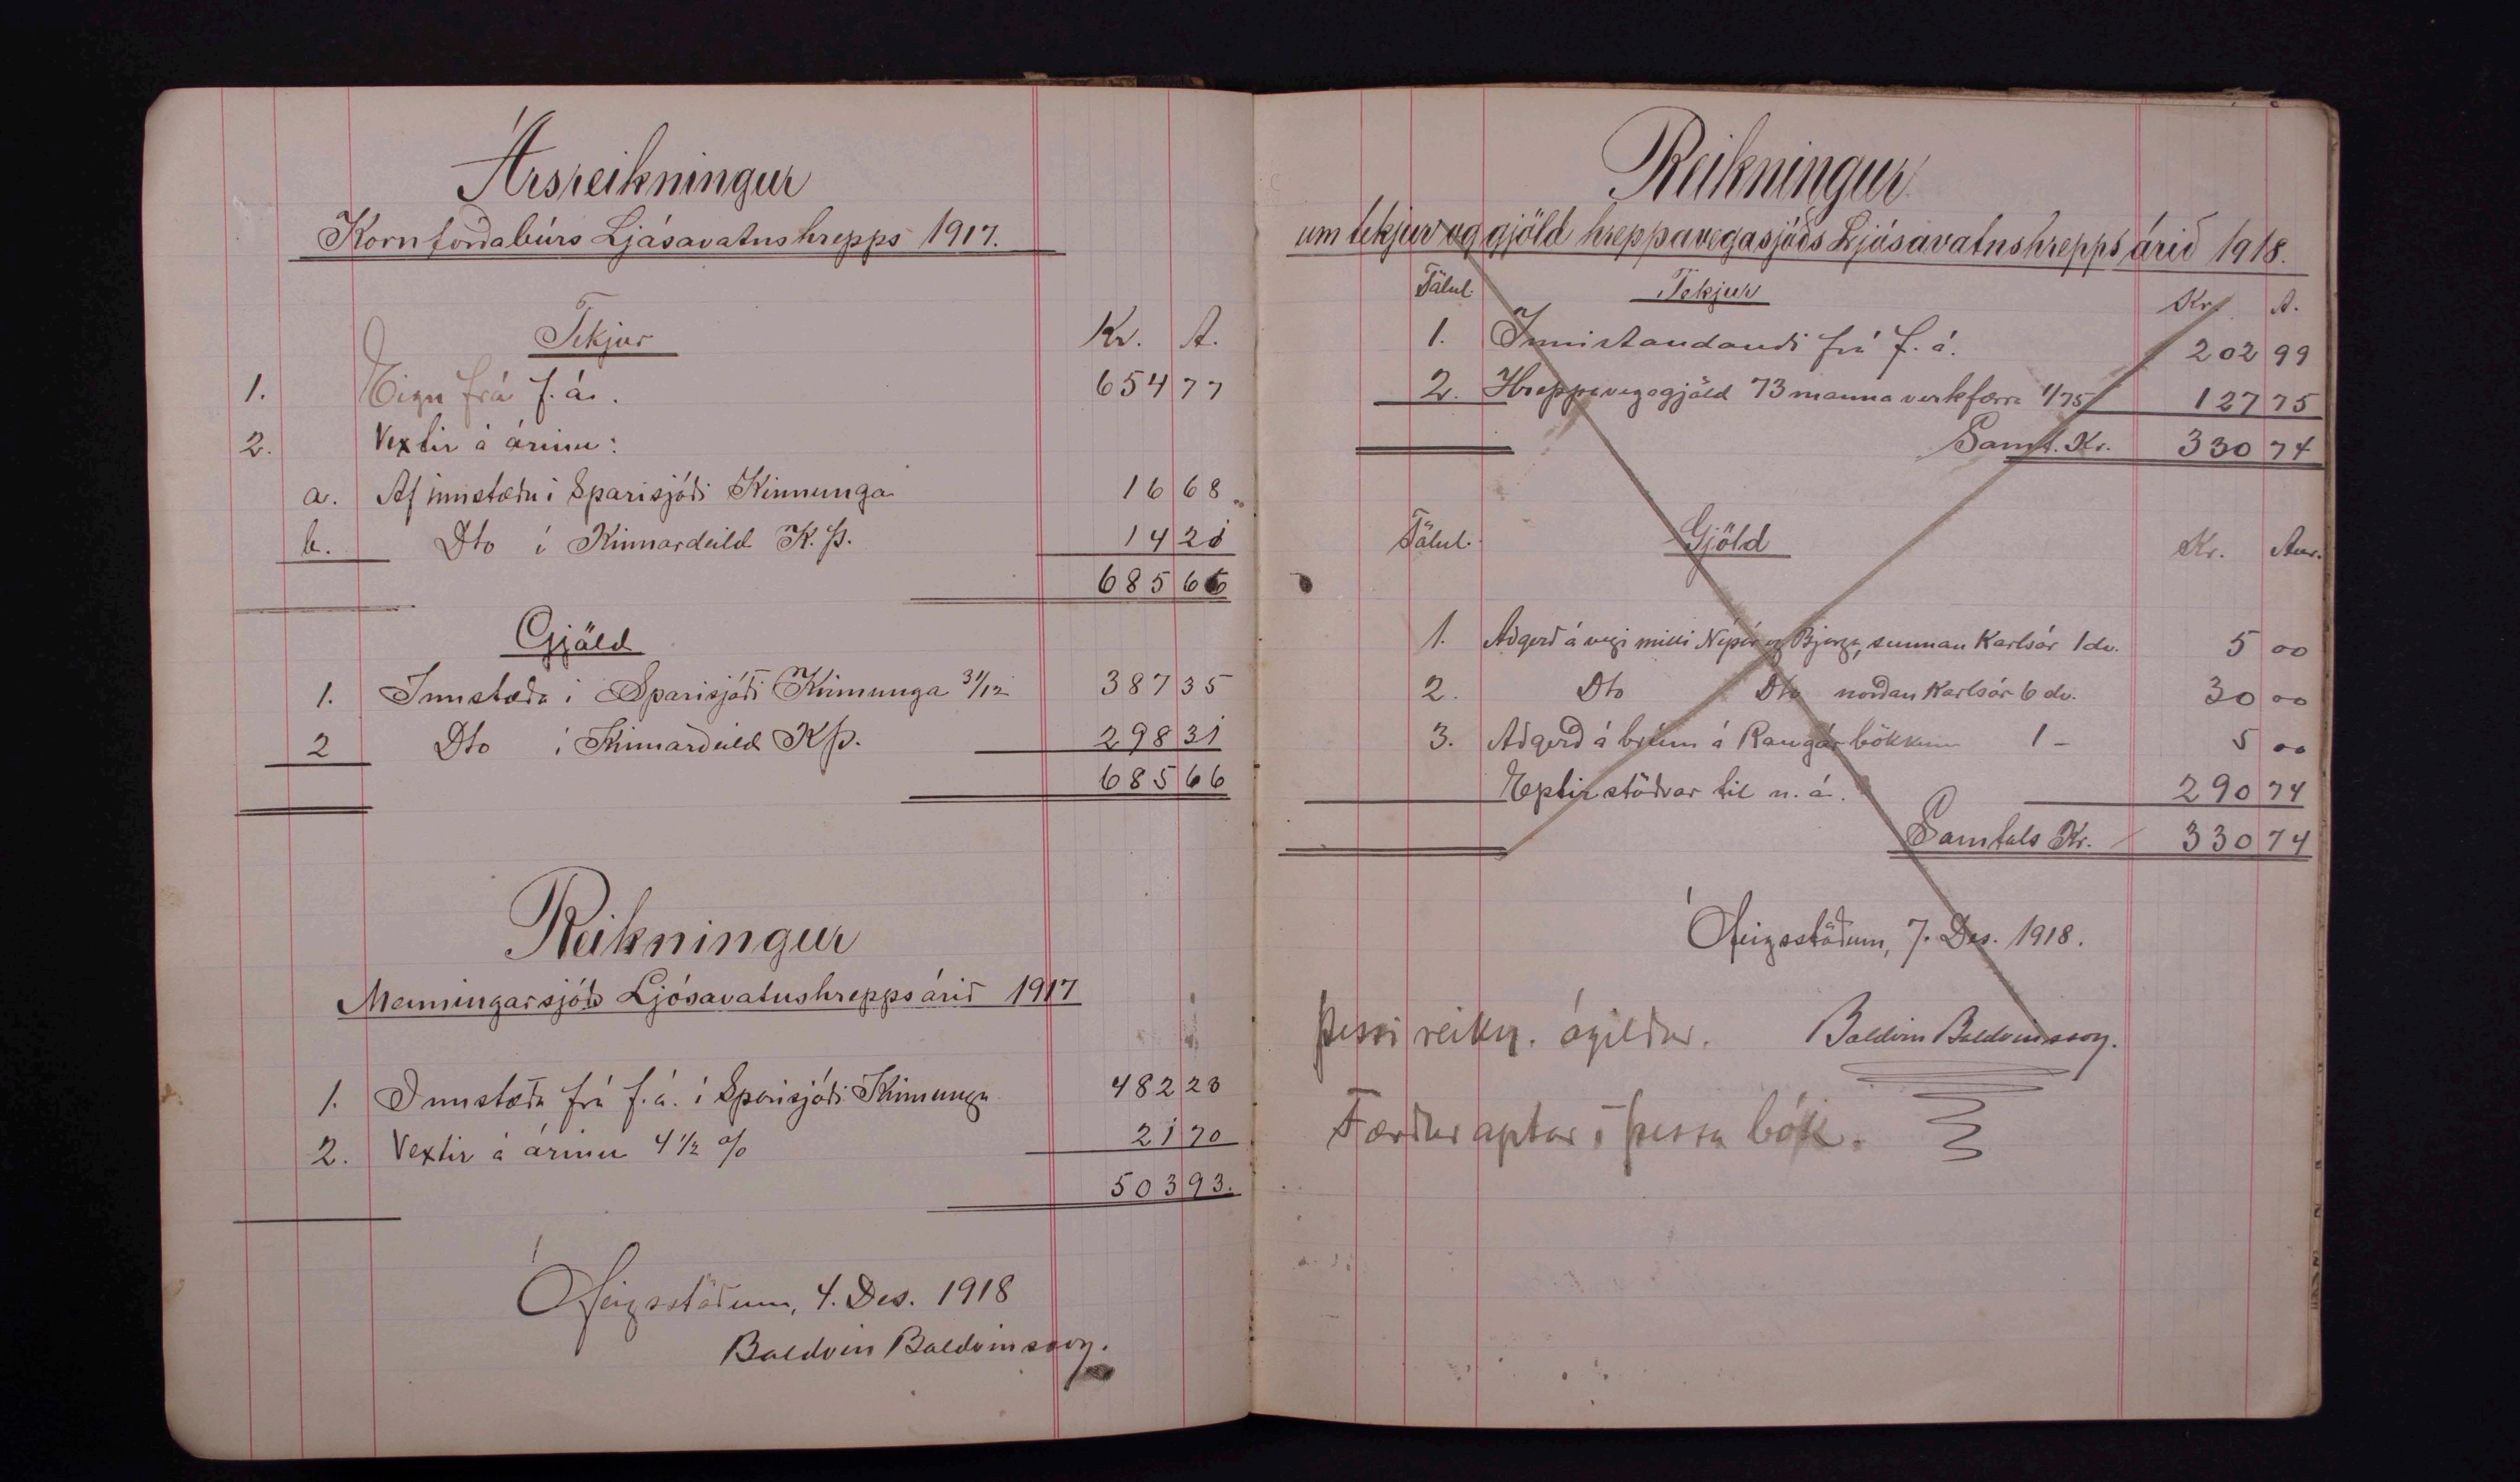 Ársreikningur
Kornforðabúrs Ljósavatnshrepps 1917.
Tekjur Kr. A.
1. Eign frá f. á. 654 77
2. Vextir á árinu:
a. Af innstæðu í Sparisjóði Kinnunga 16 68
b. Dto í Kinnardeild K. Þ. 14 21
685 66
Gjöld
1. Innstæða í Sparisjóði Kinnunga 31/12 387 35
2 Dto í Kinnardeild KÞ. 298 31
685 66
Reikningur
Menningarsjóðs Ljósavatnshrepps árið 1917
1. Innstæða frá f. á. í Sparisjóði Kinnunga 482 23
2. Vextir á árinu 4 1/2 % 21 70
503 93.
Ófeigsstöðum, 4. Des. 1918
Baldvin Baldvinsson.
Reikningur
um tekjur og gjöld hreppavegasjóðs Ljósavatnshrepps árið 1918.
Tölul. Tekjur Kr. A.
1. Innistandandi frá f. á. 202 99
2. Hreppavegagjöld 73 manna verkfærra 1/75 127 75
Samt. Kr. 330 74
Tölul. Gjöld Kr. Aur.
1. Aðgerð á vegi milli Nípár og Bjarga, sunnan Karlsár 1 dv. 5 00
2. Dto Dto norðan Karlsár 6 dv. 30 00
3. Aðgerð á brúm á Rangárbökkum 1 - 5 00
Eptirstöðvar til n. á. 290 74
Samtals Kr. 330 74
Ófeigsstöðum, 7. Des. 1918.
Þessi reikn. ógildur. Baldvin Baldvinsson.
Færður aptar í þessa bók.